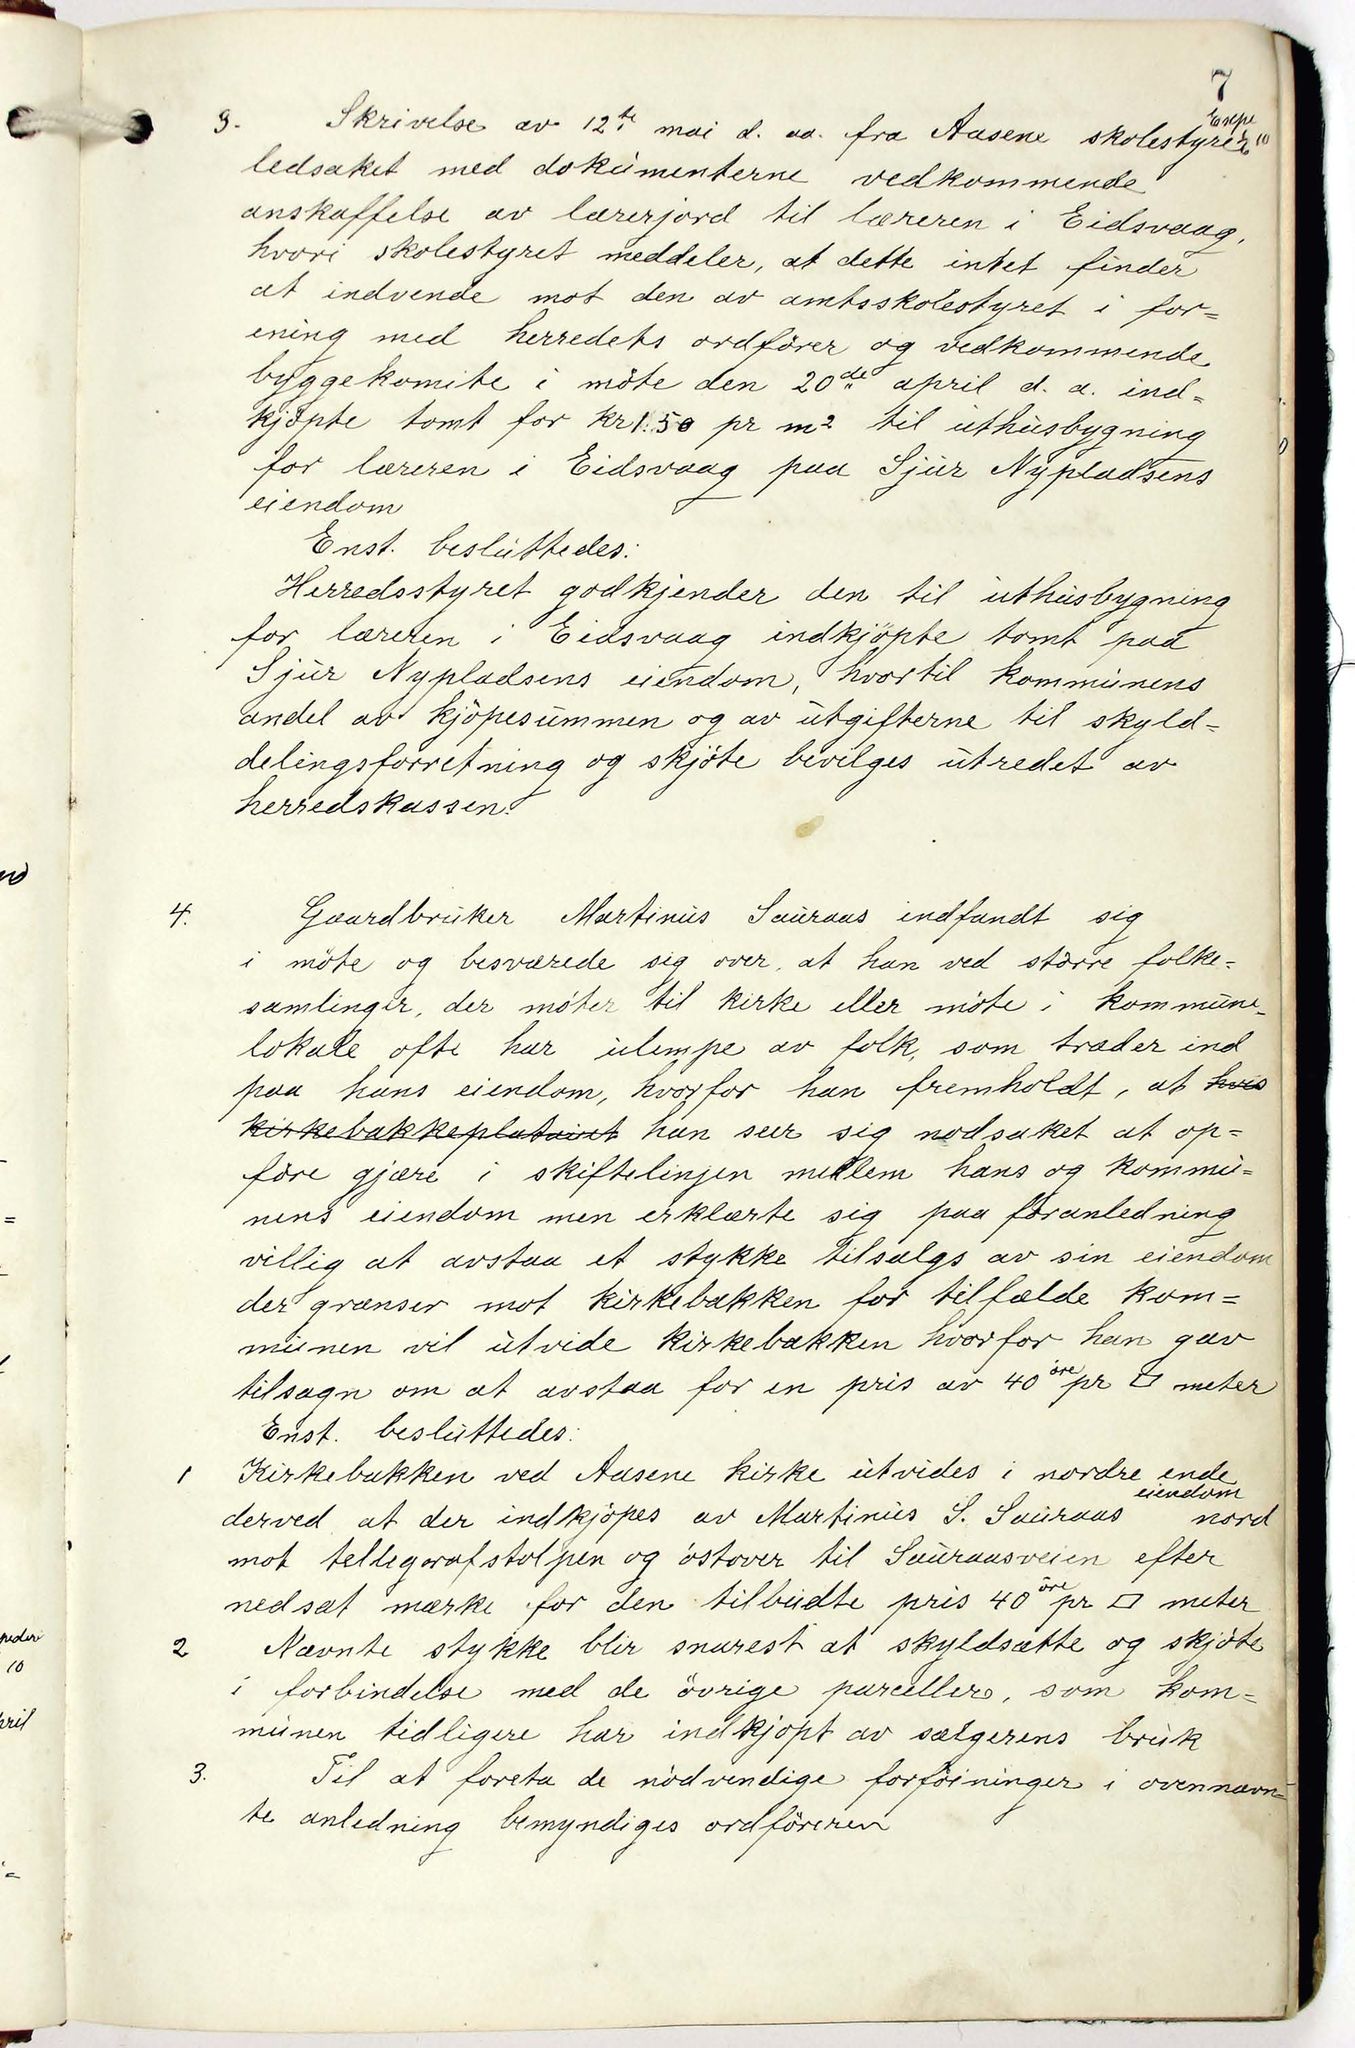 7
Expe
3. Skrivelse av 12te mai d. aa. fra Aasene skolestyre 10
ledsaket med dokumenterne vedkommende
anskaffelse av lærerjord til læreren i Eidsvaag,
hvori skolestyret meddeler, at dette intet finder
at indvende mot den av amtsskolestyret i for=
ening med herredets ordfører og vedkommende
byggekomite i møte den 20de april d. a. ind=
kjøpte tomt for kr 1.50 pr m2 til uthusbygning
for læreren i Eidsvaag paa Sjur Nypladsens
eiendom
Enst. besluttedes:
Herredsstyret godkjender den til uthusbygning
for læreren i Eidsvaag indkjøpte tomt paa
Sjur Nypladsens eiendom, hvortil kommunens
andel av kjøpesummen og av utgifterne til skyld=
delingsforretning og skjøte bevilges utredet av
herredskassen.
4. Gaardbruker Martinus Sauraas indfandt sig
i møte og besværede sig over, at han ved större folke=
samlinger, der møter til kirke eller møte i kommune=
lokale ofte har ulempe av folk, som træder ind
paa hans eiendom, hvorfor han fremholdt, at hvis
kirkebakkeplataaet han seer sig nødsaket at op=
føre gjære i skiftelinjen mellem hans og kommu=
nens eiendom men erklærte sig paa foranledning
villig at avstaa et stykke tilsalgs av sin eiendom
der grænser mot kirkebakken for tilfælde kom=
munen vil utvide kirkebakken hvorfor han gav
tilsagn om at avstaa for en pris av 40 øre pr □ meter
Enst. besluttedes:
1 Kirkebakken ved Aasene kirke utvides i nordre ende
eiendom
derved at der indkjøpes av Martinus S. Sauraas nord
mot tellegrafstolpen og østover til Sauraasveien efter
nedsat mærke for den tilbudte pris 40 øre pr □ meter
2 Nævnte stykke blir snarest at skyldsætte og skjøte
i forbindelse med de øvrige parceller, som kom=
munen tidligere har indkjøpt av sælgerens bruk
3. Til at foreta de nødvendige forføininger i ovennævn=
te anledning bemyndiges ordføreren